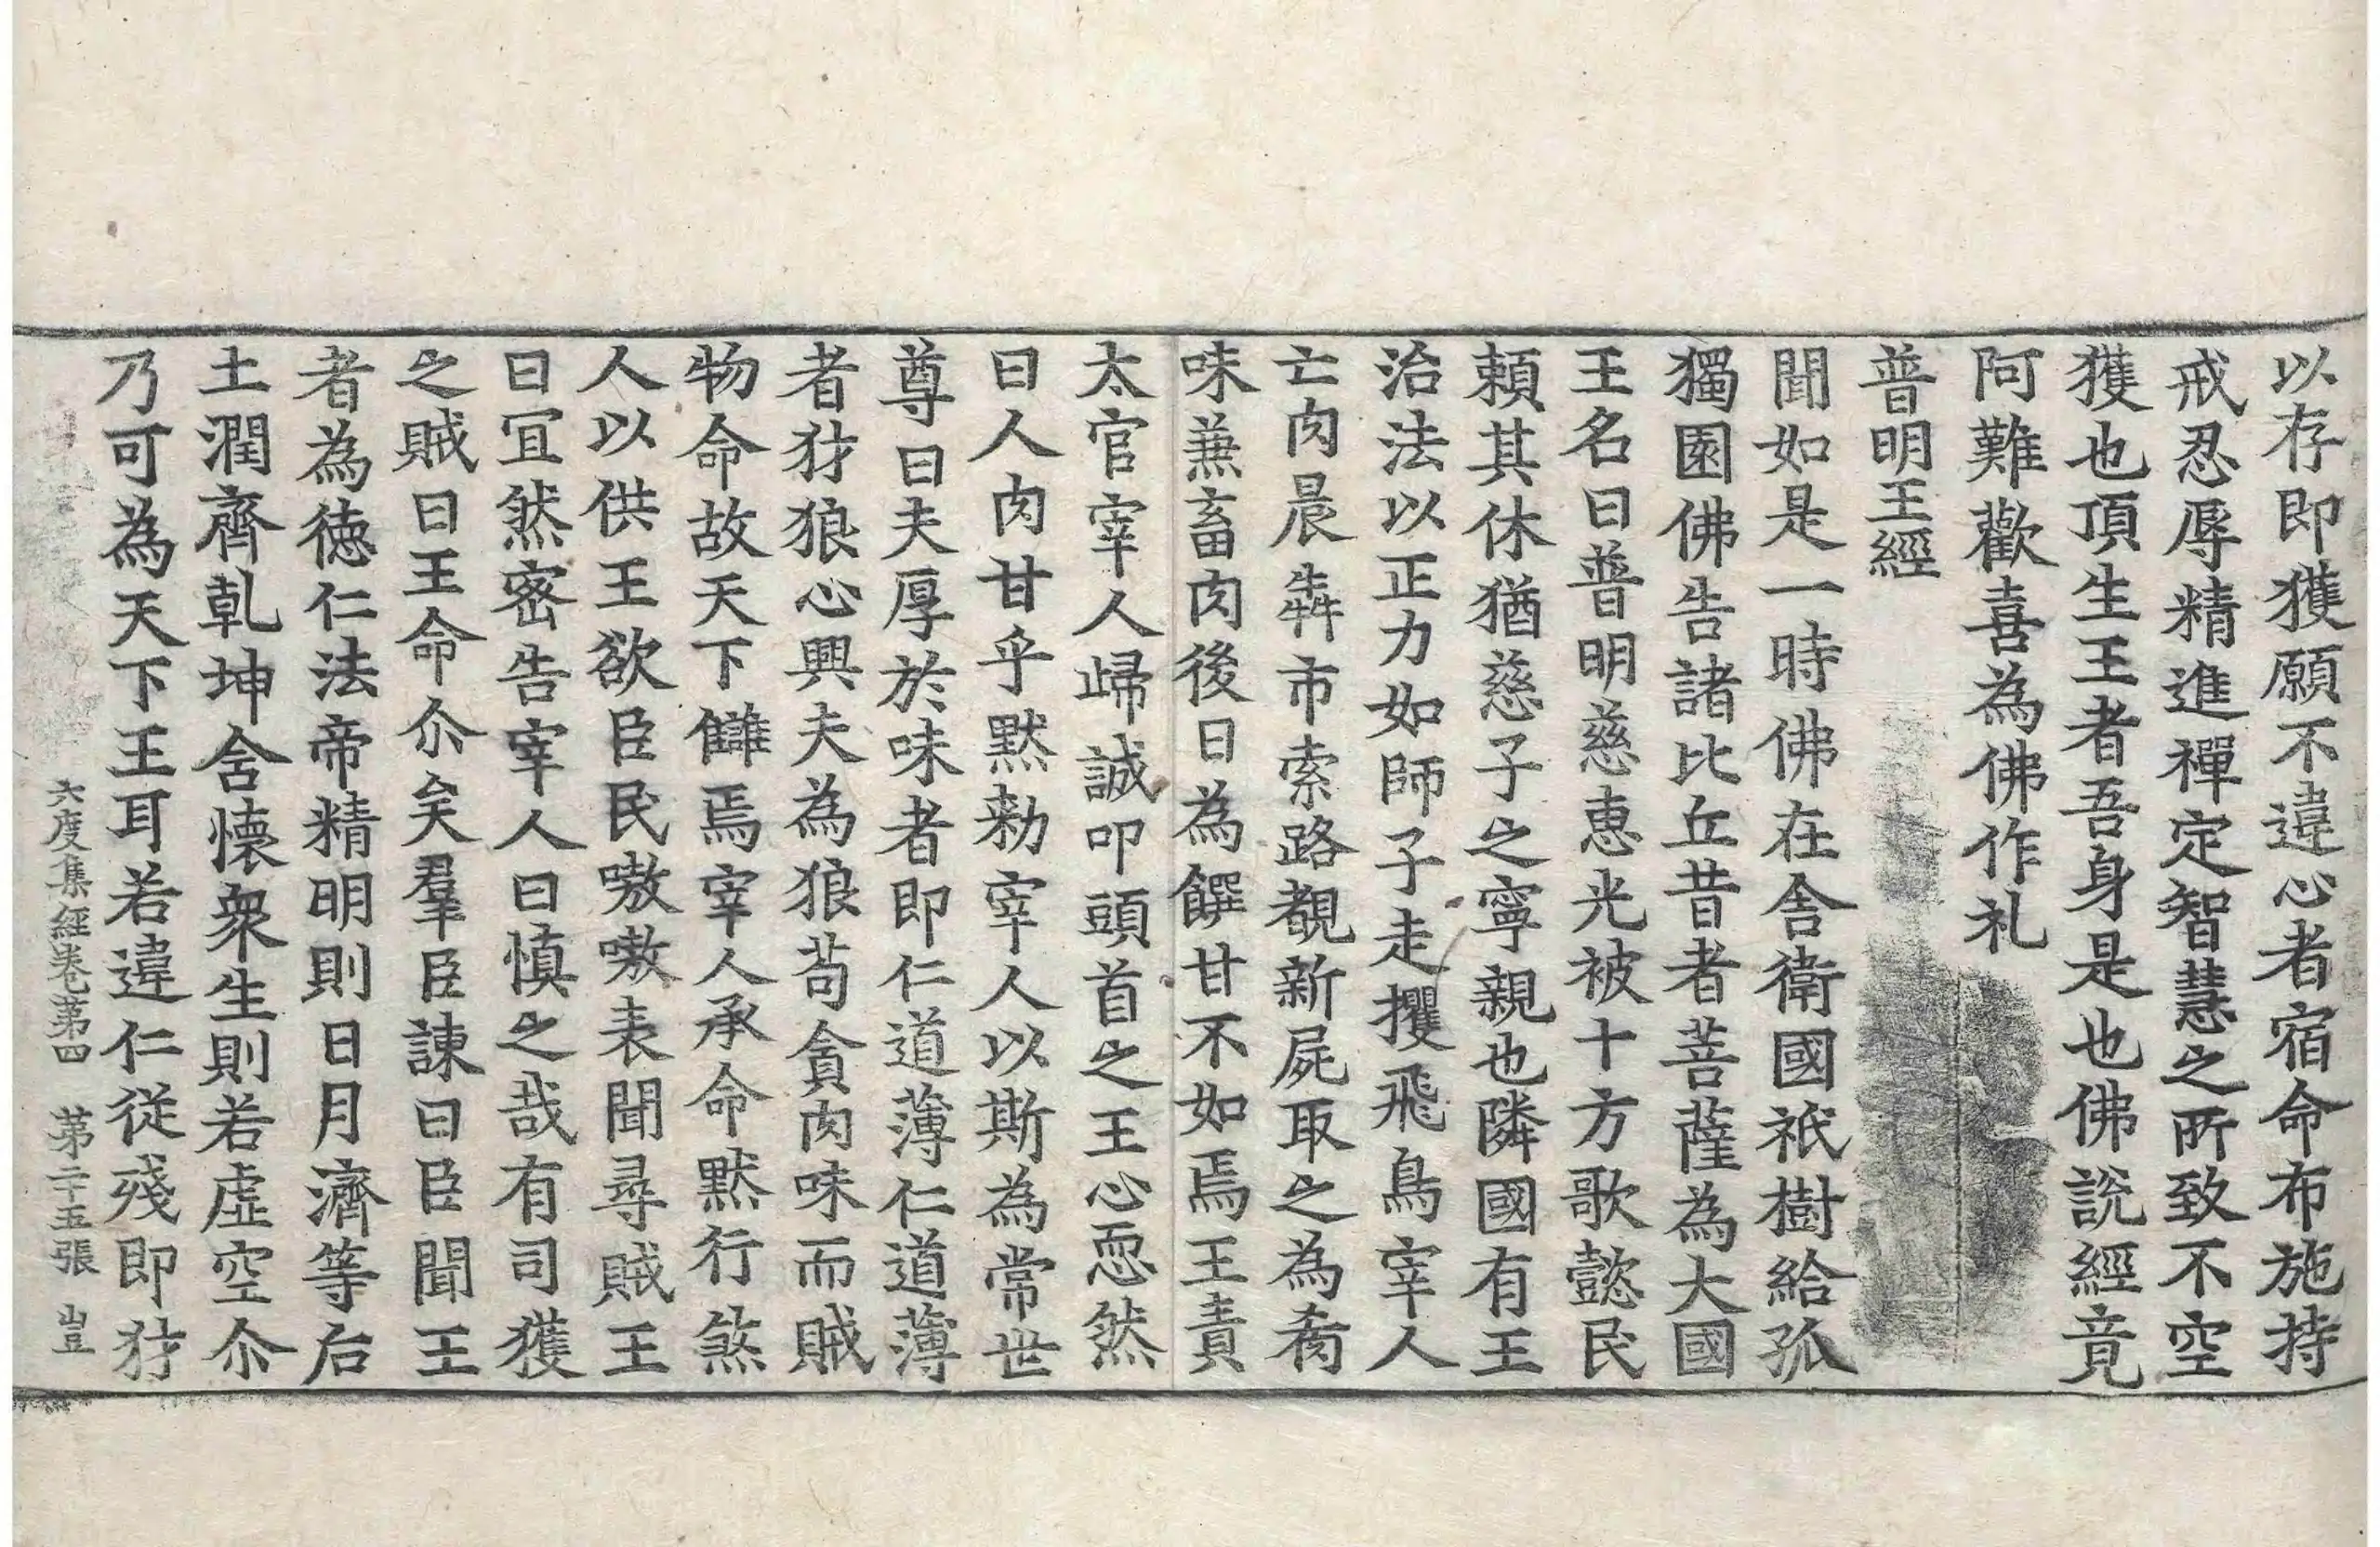 以存即獲願不違心者宿命布施持
戒忍辱精進禪定智慧之所致不空
獲也頂生王者吾身是也佛說經竟
阿難歡喜為佛作礼
普明王經
聞如是一時佛在舍衛國祇樹給孤
獨園佛告諸比丘昔者菩薩為大國
王名曰普明慈惠光被十方歌懿民
頼其休猶慈子之寧親也隣國有王
治法以正力如師子走攫飛鳥宰人
亡肉晨犇市索路覩新屍取之為肴
味兼畜肉後日為饌甘不如焉王責
太官宰人歸誠叩頭首之王心恧然
曰人肉甘乎黙勑宰人以斯為常世
尊曰夫厚於味者即仁道薄仁道薄
者犲狼心興夫為狼苟貪肉味而賊
物命故天下讎焉宰人承命黙行煞
人以供王欲臣民嗷嗷表聞尋賊王
曰冝然密告宰人曰慎之哉有司獲
之賊曰王命尒矣羣臣諫曰臣聞王
者為徳仁法帝精明則日月濟等后
土潤齊乹坤含懷衆生則若虛空尒
乃可為天下王耳若違仁從殘即犲
六度集經卷第四 第二十五張 豈